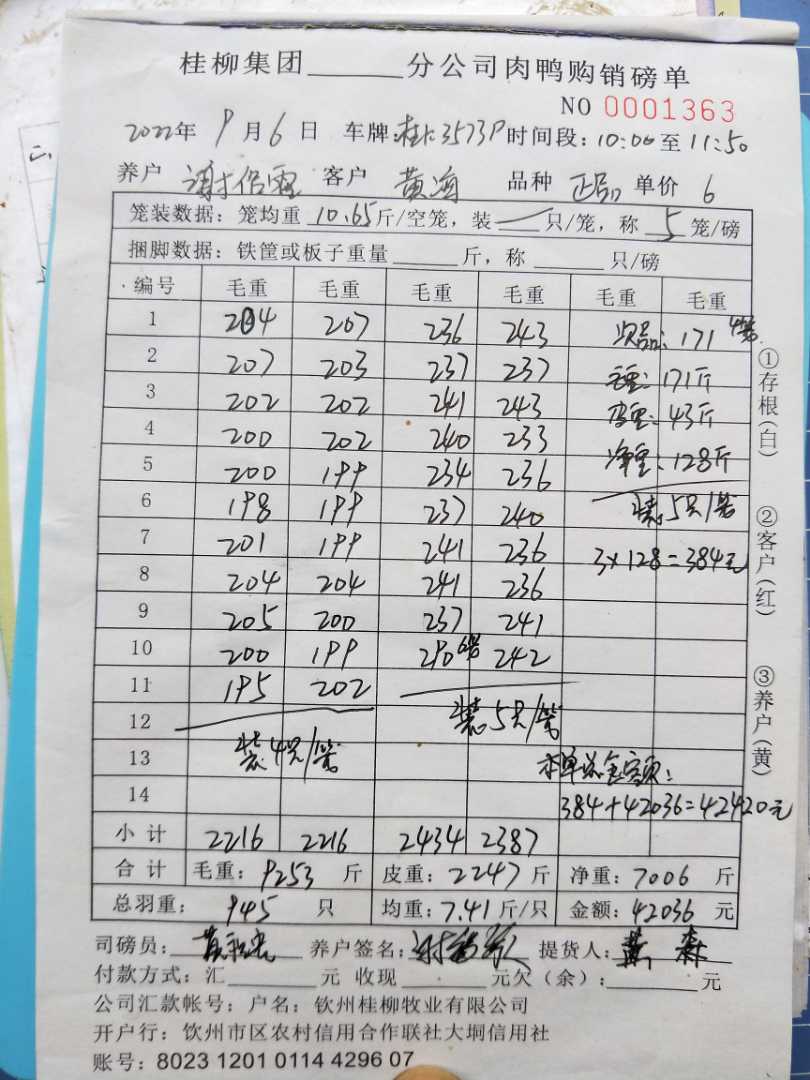 桂柳集团______分公司肉鸭购销磅单
NO 0001363
2022年 9月6日 车牌:桂 3573P 时间段:10:00至11:50
养户 谢 客户 黄海 品种 正品 单价 6
笼装数据:笼均重 10.65斤/空笼,装 — 只/笼,称 5 笼/磅
捆脚数据:铁筐或板子重量______斤,称______只/磅
编号 毛重 毛重 毛重 毛重 毛重 毛重
1 204 207 236 243 次品:171 4笼
2 207 203 237 237 毛重:171斤
3 202 202 241 243 皮重:43斤
4 200 202 240 233 净重:128斤
5 200 199 234 236
6 198 199 237 240 装5只/笼
7 201 199 241 236 3×128=384元
8 204 204 241 236
9 205 200 237 241
10 200 199 290 6笼 242
11 195 202
12 装5只/笼
13 装4只/笼 本单总金额:
14 384+42036=42420元
小计 2216 2216 2434 2387
合计 毛重:9253 斤 皮重:2247 斤 净重:7006 斤
总羽重: 945 只 均重:7.41斤/只 金额:42036 元
司磅员: 养户签名: 提货人:黄森
付款方式:汇______元 收现______元欠(余):______元
公司汇款帐号:户名:钦州桂柳牧业有限公司
开户行:钦州市区农村信用合作联社大垌信用社
账号:8023 1201 0114 4296 07
①存根(白)
②客户(红)
③养户(黄)